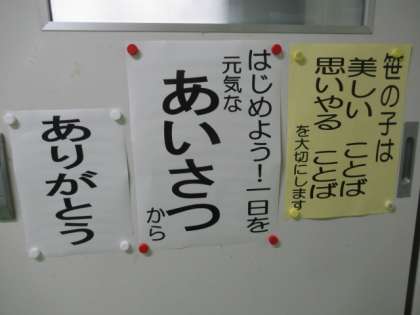 笹の子は
美しい ことば
思いやる ことば
を大切にします
はじめよう！一日を
元気な
あいさつ
から
ありがとう